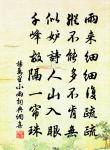 雨来细细复疏疏
纵不能多不肯无
似妒诗人山入眼
千峰故隔一帘珠
杨万里小雨词典网嘉